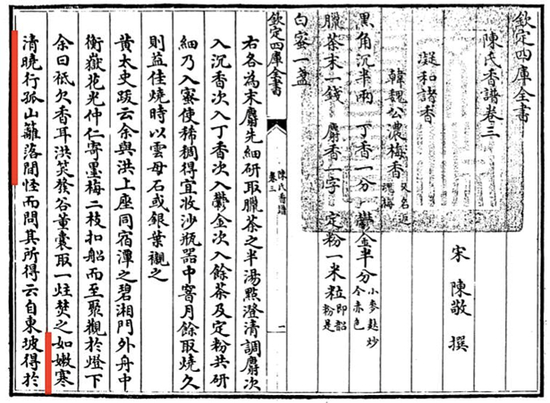 欽定四庫全書
陳氏香譜卷三
宋 陳敬 撰
凝和諸香
韓魏公濃梅香 又名返魂梅
黑角沉半兩 丁香一分 鬱金半分 小麥麩炒令赤色
臘茶末一錢 麝香一字 定粉一米粒 即韶粉是
白蜜一盞
欽定四庫全書
陳氏香譜
卷三
二
右各為末麝先細研取臘茶之半湯點澄清調麝次
入沉香次入丁香次入鬱金次入餘茶及定粉共研
細乃入蜜使稀稠得宜收沙瓶器中窨月餘取燒久
則益佳燒時以雲母石或銀葉觀之
黃太史跋云余與洪上座同宿潭之碧湘門外舟中
衡嶽花光仲仁寄墨梅二枝扣船而至聚觀於燈下
余曰祗欠香耳洪笑發谷董囊取一炷焚之如嫩寒
清曉行孤山籬落間怪而問其所得云自東坡得於